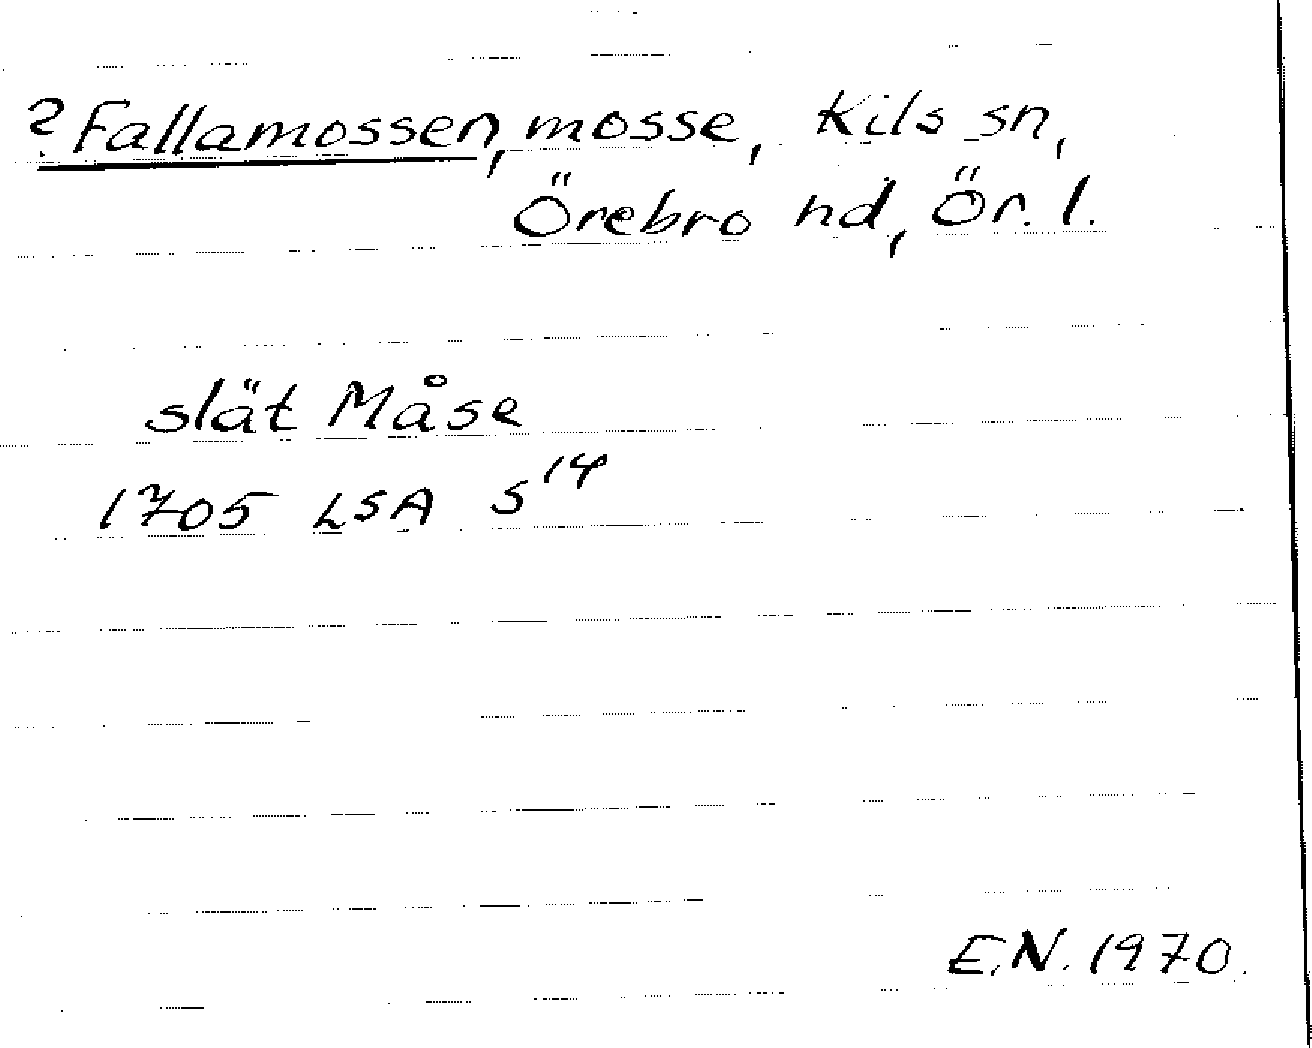 ? Fallamossen, mosse, Kils sn,
Örebro hd, Ör. l.
slät Måse
1705 LSA S¹⁴
E.N. 1970.